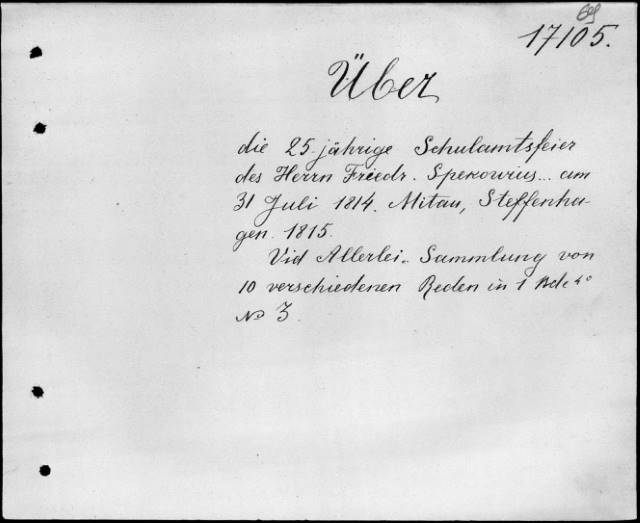 17105.
Über
die 25-jährige Schulamtsfeier
des Herrn Friedr. Sperowius... am
31 Juli 1814. Mitau, Steffenha-
gen. 1815.
Vid Allerlei. Sammlung von
10 verschiedenen Reden in 1 Bde 4°
№ 3